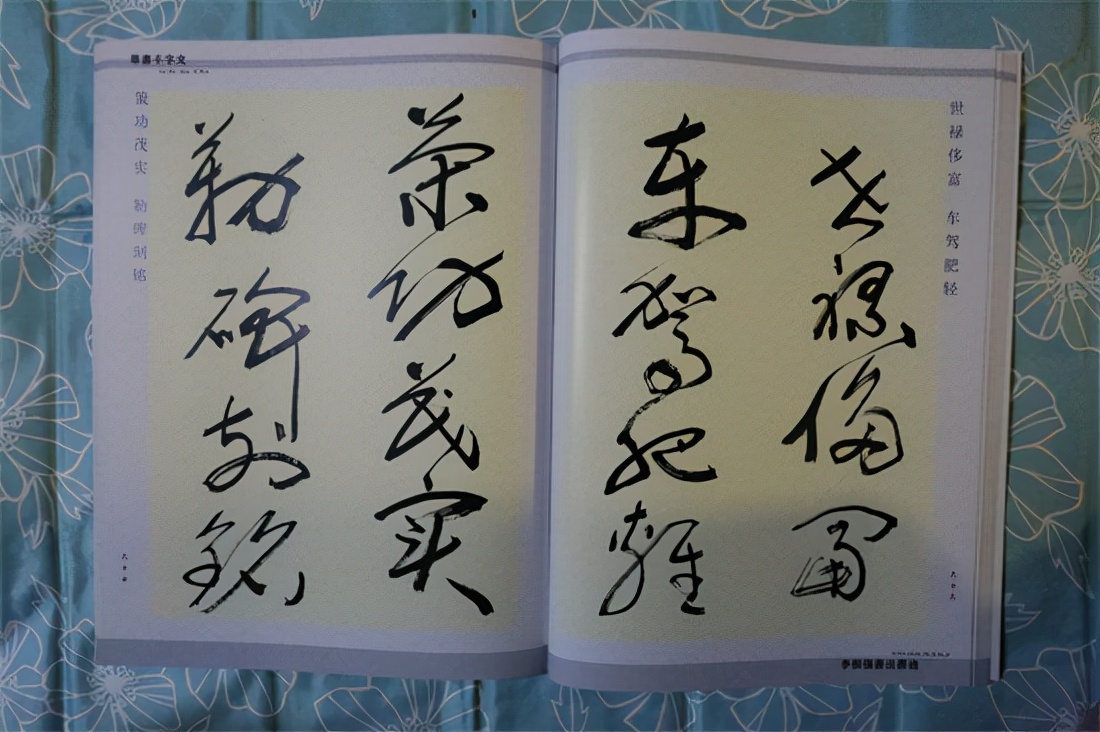 世禄侈富 车驾肥轻
世禄侈富
车驾肥轻
草書千字文
策功茂实
勒碑刻铭
策功茂实 勒碑刻铭